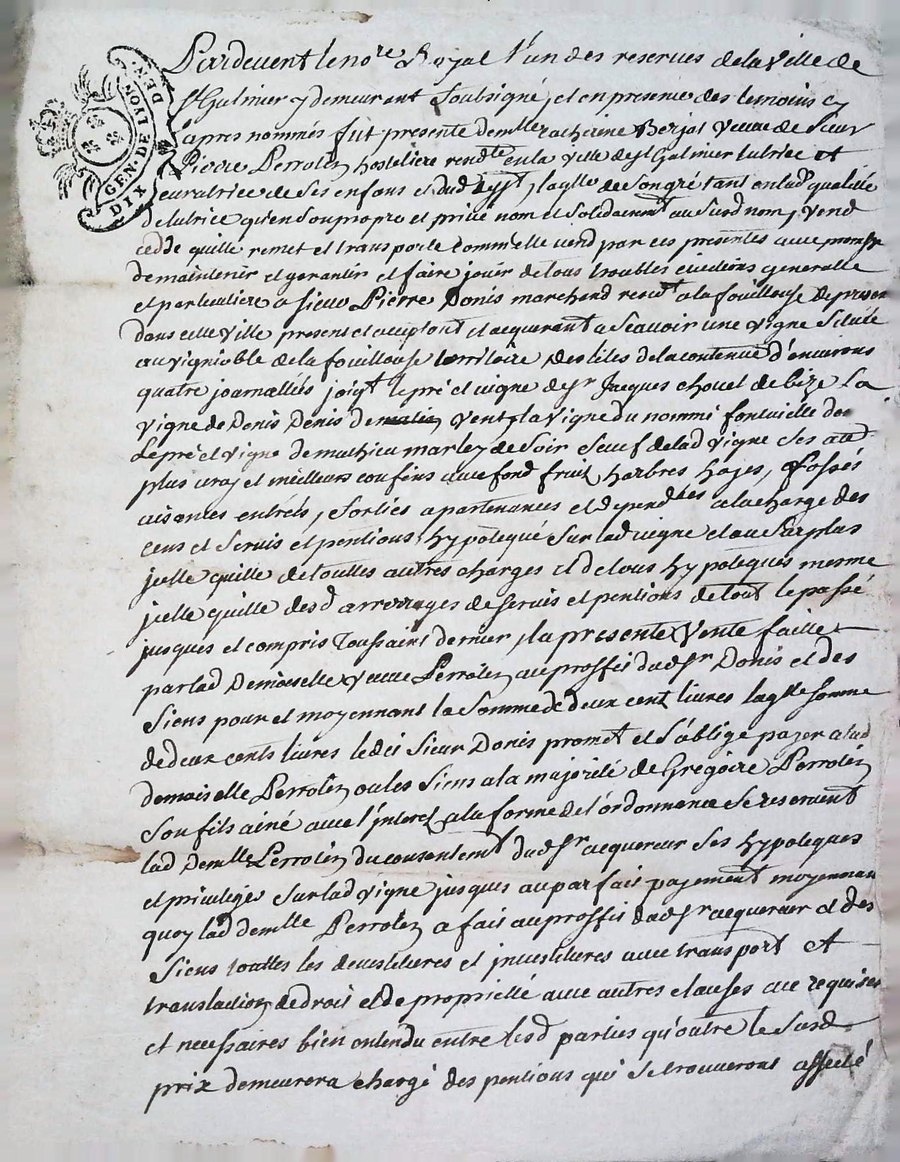 GEN. DE LYON
DIX DEN.
Pardevent le nore Royal l'un des reserves de la ville de
St Galmier y demeurant soubsigné, et en presence des temoins cy
apres nommés fut presente demlle Catherine Berjot veuve de sieur
Pierre Perrotin hosteliere rendte en la ville de St Galmier tutrice et
curatrice de ses enfans et dud , laqlle de son gré tant en lad qualitté
de tutrice qu'en son propre et privé nom et solidaremt au susd nom, vend
cedde quitte remet et transporte comm'elle vend par ces presentes avec promsse
de maintenir et garantir et faire jouir de tous troubles evictions generalle
et particuliere a sieur Pierre Donis marchand resdt a la fouillouse de present
dans cette ville present et acceptant et acquerant a scavoir une vigne scituée
au vignioble de la fouillouse territoire des lites de la contenue d'environs
quatre journallées joigt le pré et vigne de sr Jacques chovet de bize la
vigne de Denis Denis de matin vent, la vigne du nommé fontvielle de
Le pré et vigne de mathieu marley de soir sauf de lad vigne ses aut
plus vray et meilleurs confins avec fond fruit harbres, hajes, fossés
aisances entrées, sorties apartenances et dependces a la charge des
cens et servis et pentions, hypotequé sur lad vigne et au surplus
jcelle quitte de touttes autres charges et de tous hypoteques mesme
jcelle quitte desd arrerages de servis et pentions de tout le passé
jusques et compris Toussaint dernier, la presente vente faitte
par lad Demoiselle veuve Perrotin au proffit dud sr Donis et des
siens pour et moyennant la somme de deux cent livres laqlle somme
de deux cents livres ledit sieur Donis promet et s'oblige payer a lad
demoiselle Perrotin ou les siens a la majorité de Gregoire Perrotin
son fils ainé avec l'interet a la forme de l'ordonnance se reservant
lad demlle Perrotin du consentemt dud sr acquereur ses hypoteques
et privileges sur lad vigne jusques au parfait payement moyennant
quoy lad demlle Perrotin a fait au proffit dud sr acquereur et des
siens touttes les devestitures et jnvestitures avec transport et
translation de droit et de proprietté avec autres clauses au requises
et necessaires bien entendu entre lesd parties qu'outre le susd
prix demeurera chargé des pentions qui se trouveront affecté